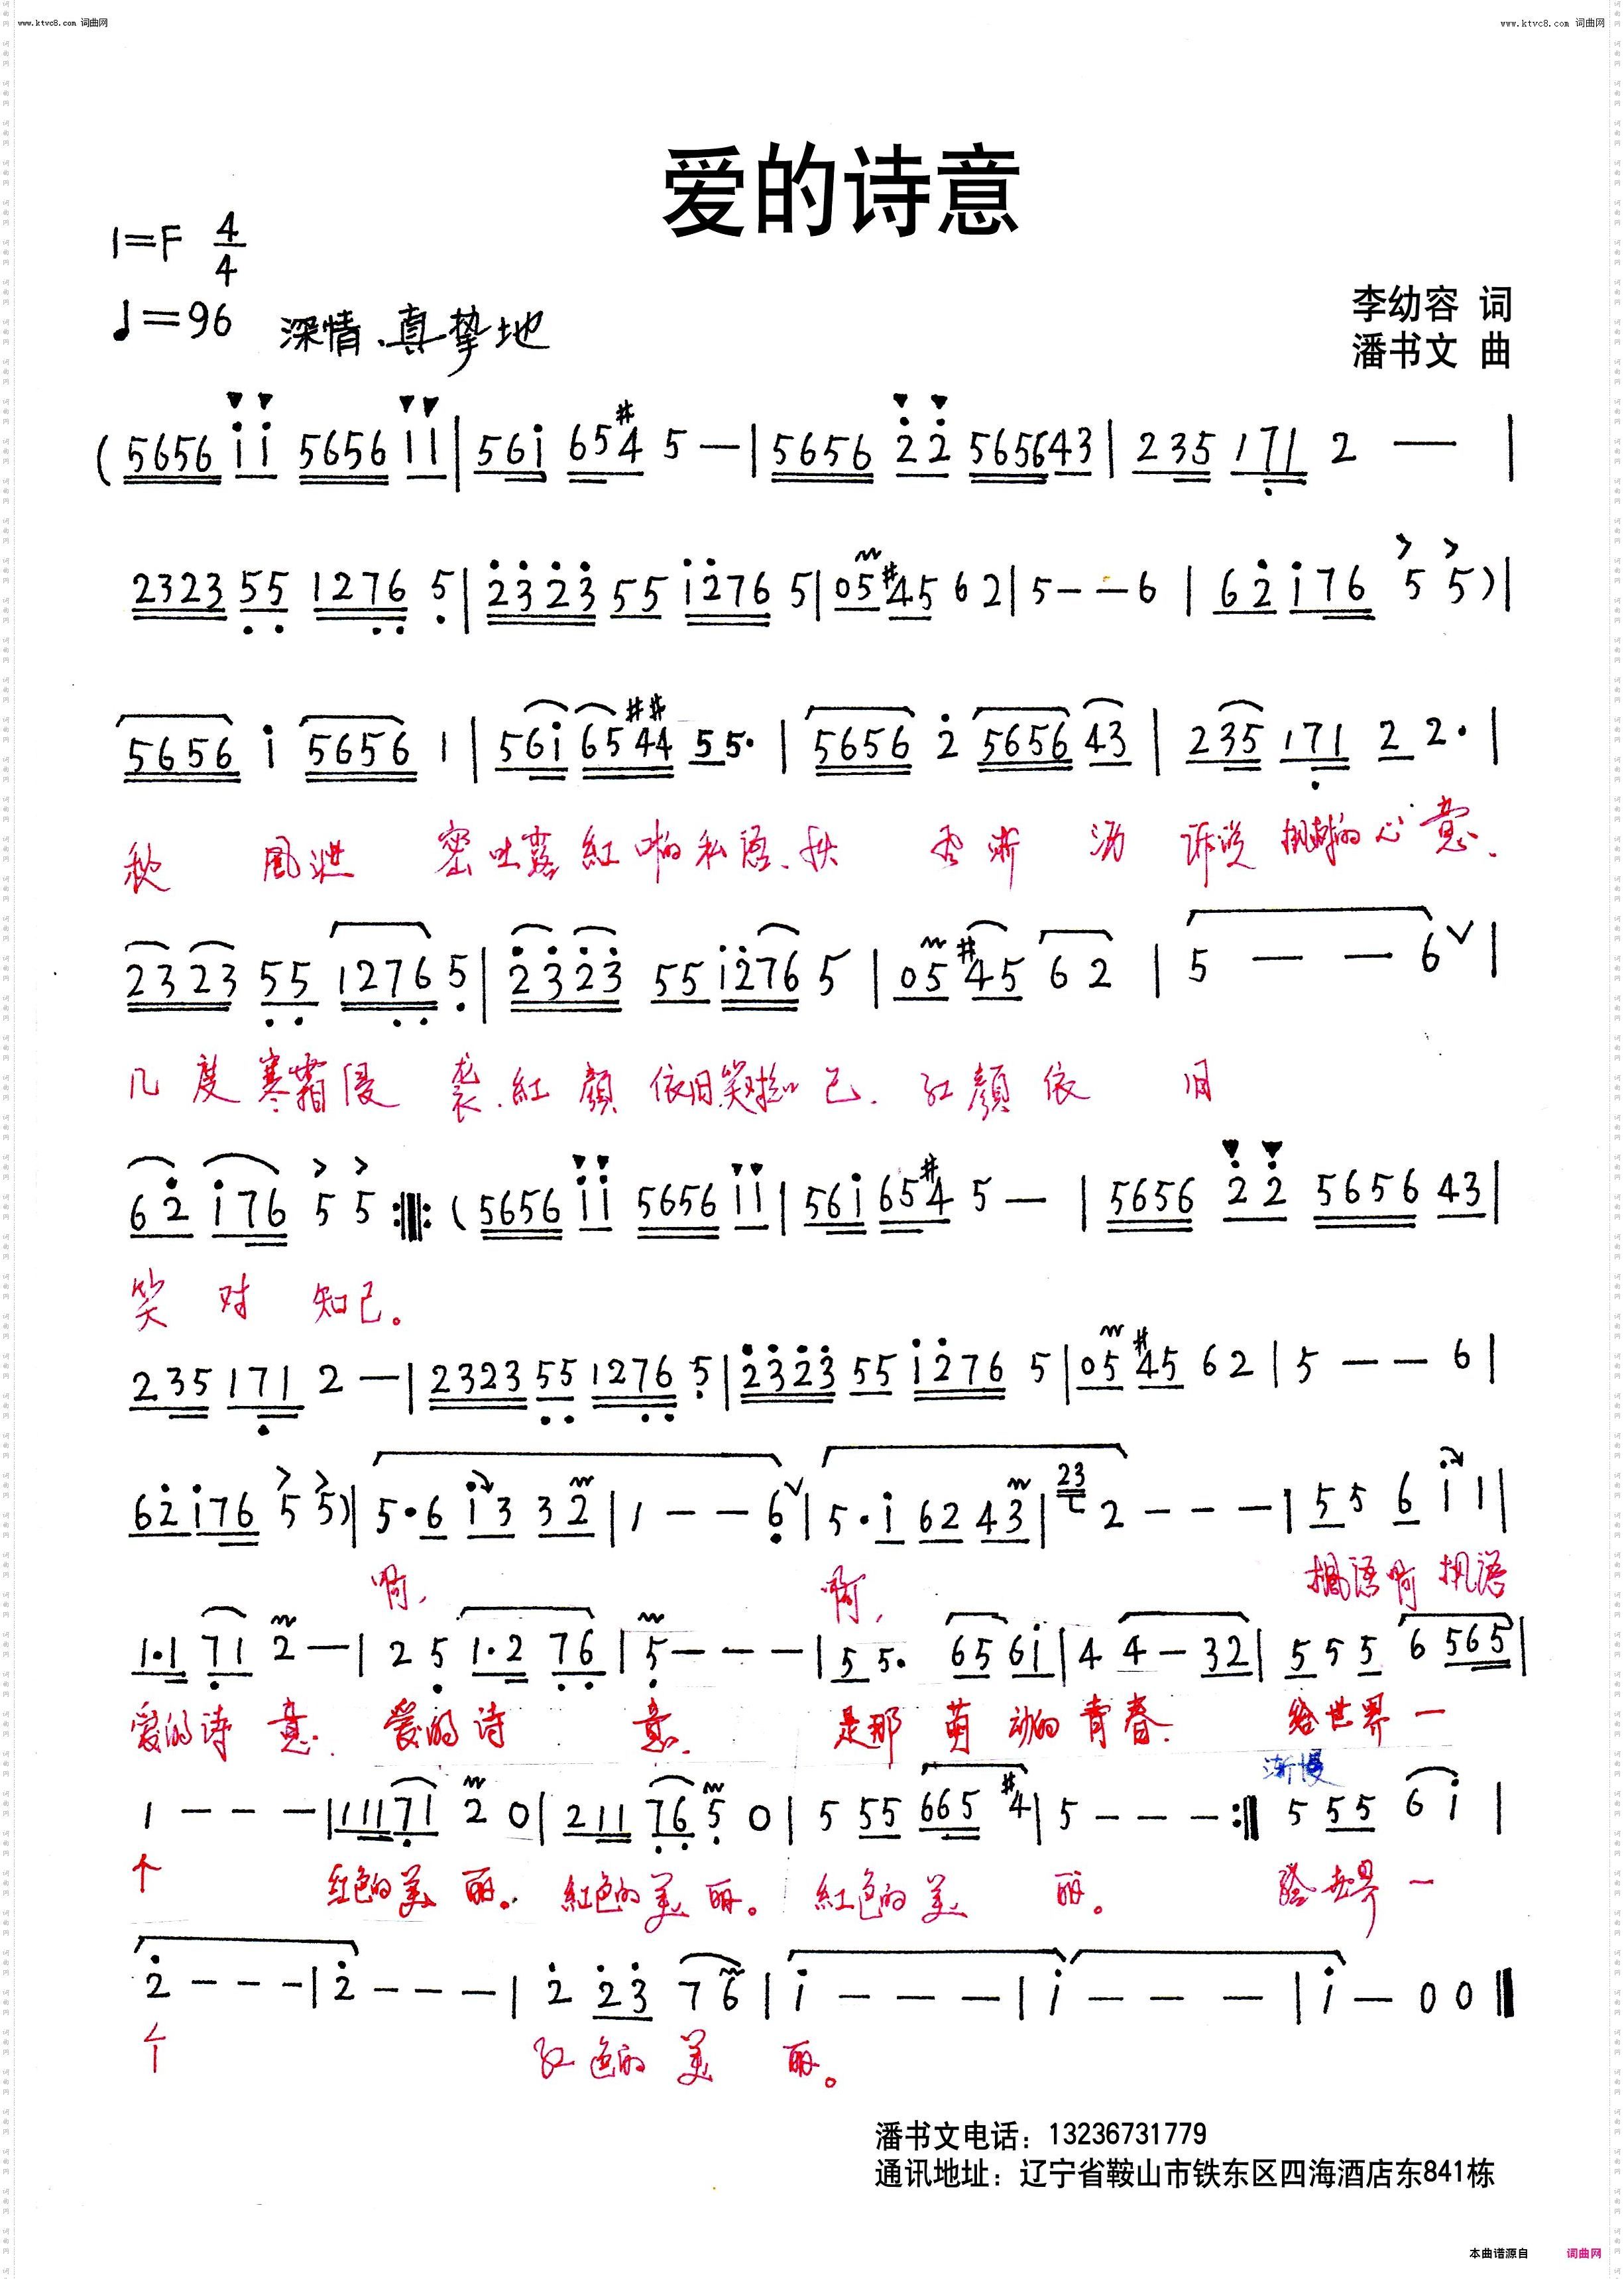 www.ktvc8.com 词曲网
www.ktvc8.com 词曲网
爱的诗意
1=F 4/4
♩=96 深情、真挚地
李幼容 词
潘书文 曲
(5656 i i 5656 1 1 | 56i 65#4 5 — | 5656 2 2 565643 | 235 171 2 — |
2323 55 1276 5 | 2323 55 i276 5 | 05 #45 62 | 5 — — 6 | 62 i76 5 5) |
5656 i 5656 1 | 56i 65#4#4 55· | 5656 2 5656 43 | 235 171 2 2· |
秋 風泄 密吐露紅 的私语、秋 风 诉说 枫树的心意、
2323 55 1276 5 | 2323 55 i276 5 | 05 #45 62 | 5 — — 6 |
几度寒霜侵 袭、紅顏 依旧笑对知己. 红顏依 旧
62 i76 5 5 :||: (5656 i i 5656 i i | 56i 65#4 5 — | 5656 2 2 5656 43 |
笑 对 知己。
235 171 2 — | 2323 55 1276 5 | 2323 55 i276 5 | 05 #45 62 | 5 — — 6 |
62 i76 5 5) | 5·6 i3 32 | 1 — — 6 | 5·i 62 43 | 23 2 — — — | 55 6 i 1 |
啊, 啊, 楓语啊 枫语
1·1 71 2 — | 2 5 1·2 76 | 5 — — — | 55· 65 6i | 4 4 — 32 | 555 6 565 |
爱的诗 意. 爱的诗 意. 是那 萌 动的青春. 给世界一
渐慢
1 — — — | 111171 2 0 | 211 76 5 0 | 5 55 665 #4 | 5 — — — :|| 5 55 6i |
个 红色的美 丽。 紅色的美 丽。 紅色的美 丽。 给世界一
2 — — — | 2 — — — | 2 23 7 6 | i — — — | i — — — | i — 0 0 ||
个 红色的 美 丽。
潘书文电话：13236731779
通讯地址：辽宁省鞍山市铁东区四海酒店东841栋
本曲谱源自 词曲网